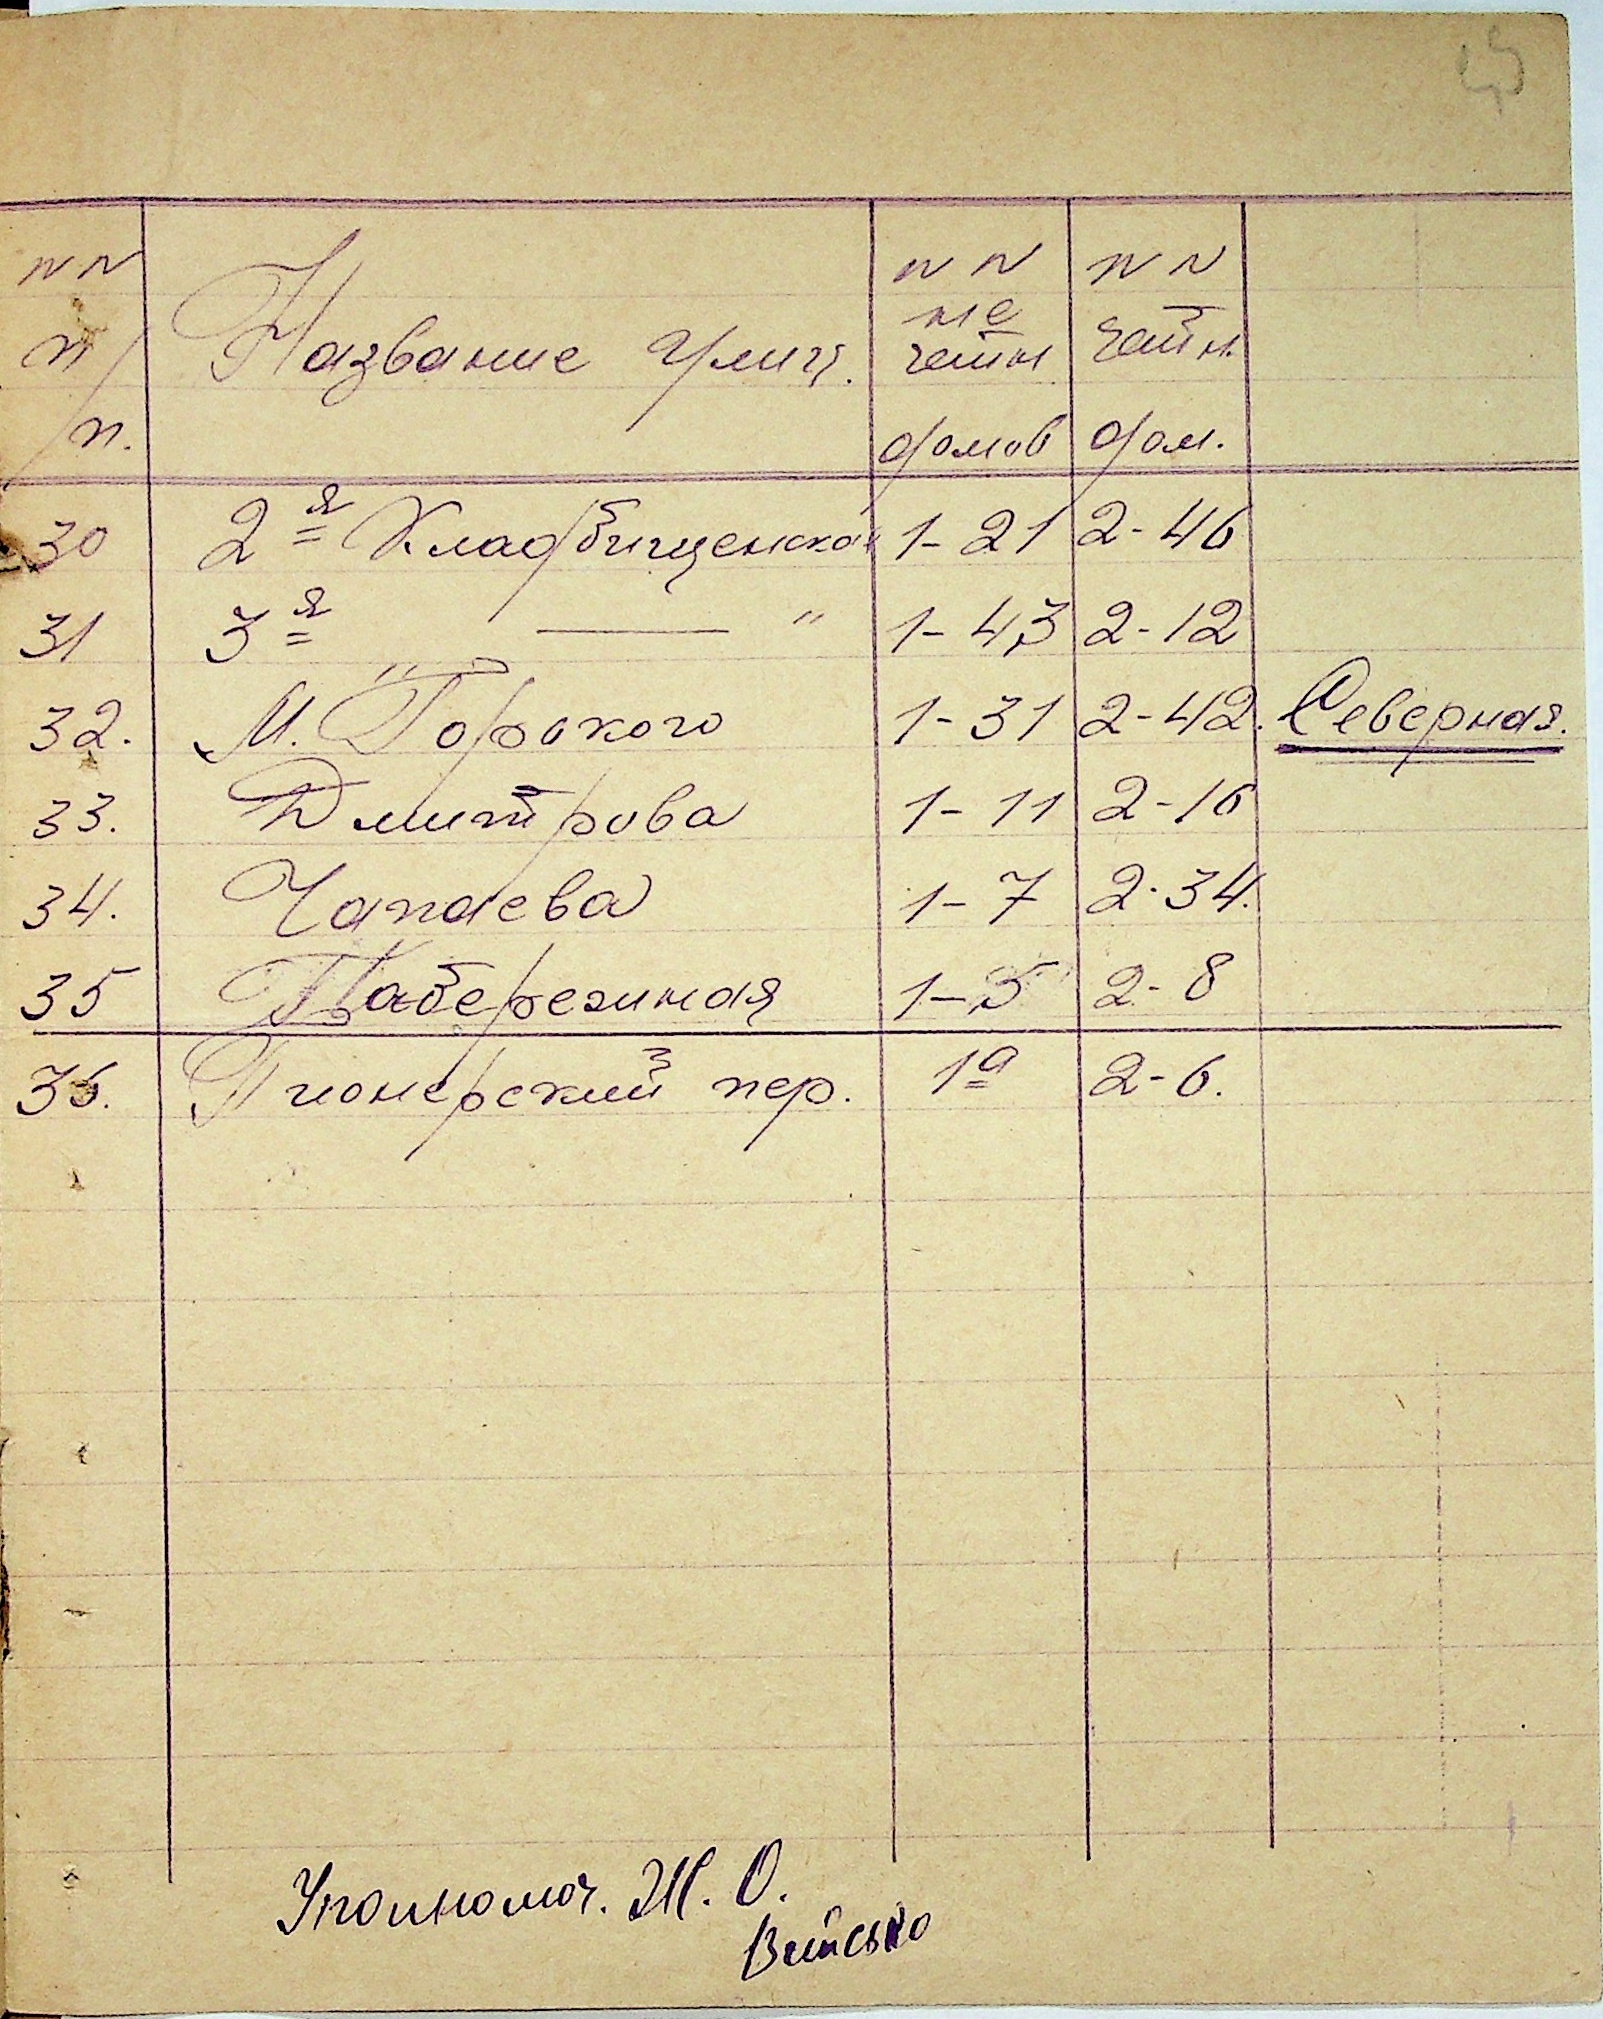 45
№ № п/п. Название улиц. № № не четн. домов № № четн. дом.
30 2я Кладбищенская 1-21 2-46
31 3я —— " 1-43 2-12
32. М. Горького 1-31 2-42. Северная.
33. Дмитрова 1-11 2-16
34. Чапаева 1-7 2-34.
35 Набережная 1-5 2-8
36. Пионерский пер. 1а 2-6.
Уполномоч. Ж. О.